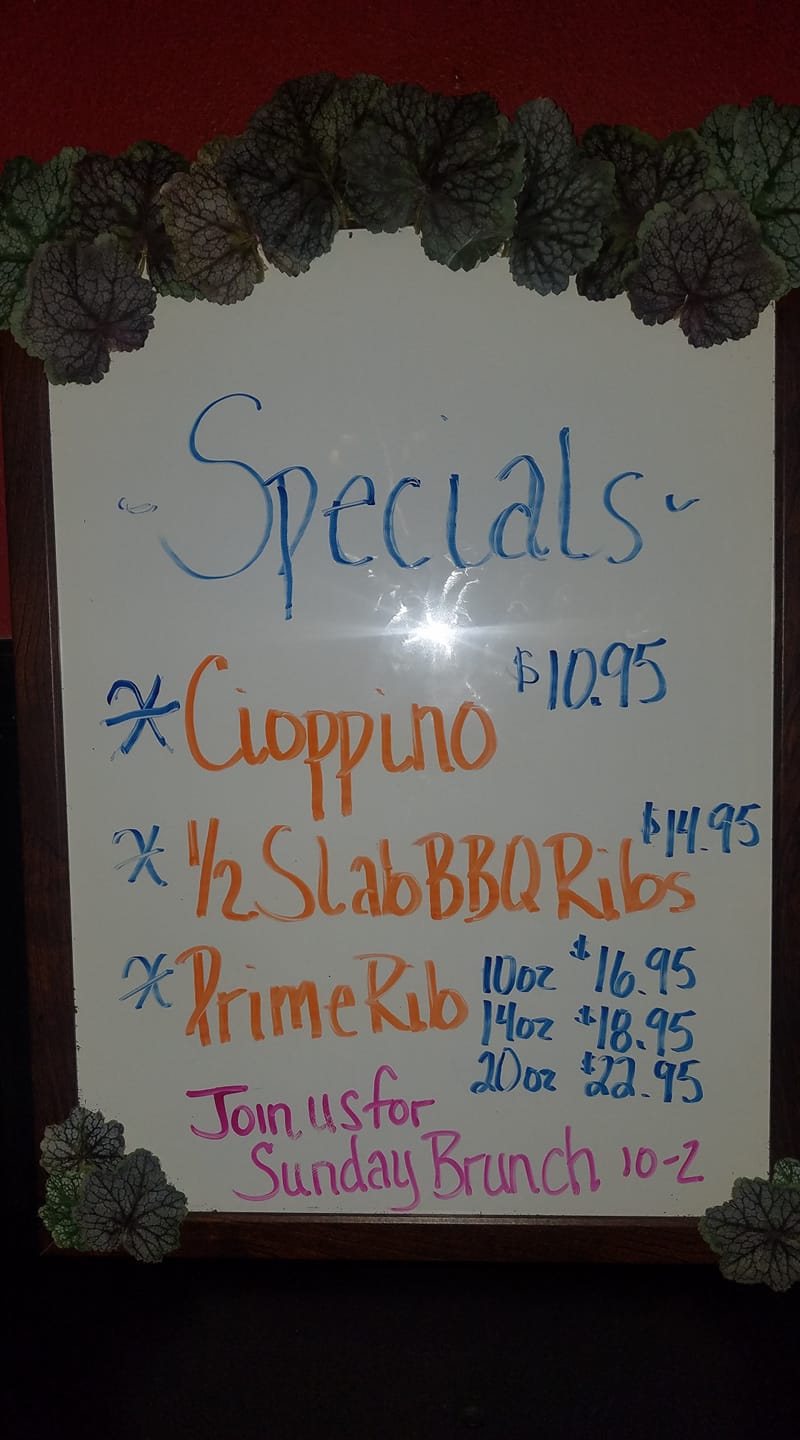 ~Specials~
*Cioppino $10.95
*1/2 Slab BBQ Ribs $14.95
*Prime Rib 10oz $16.95
14oz $18.95
20oz $22.95
Join us for
Sunday Brunch 10-2